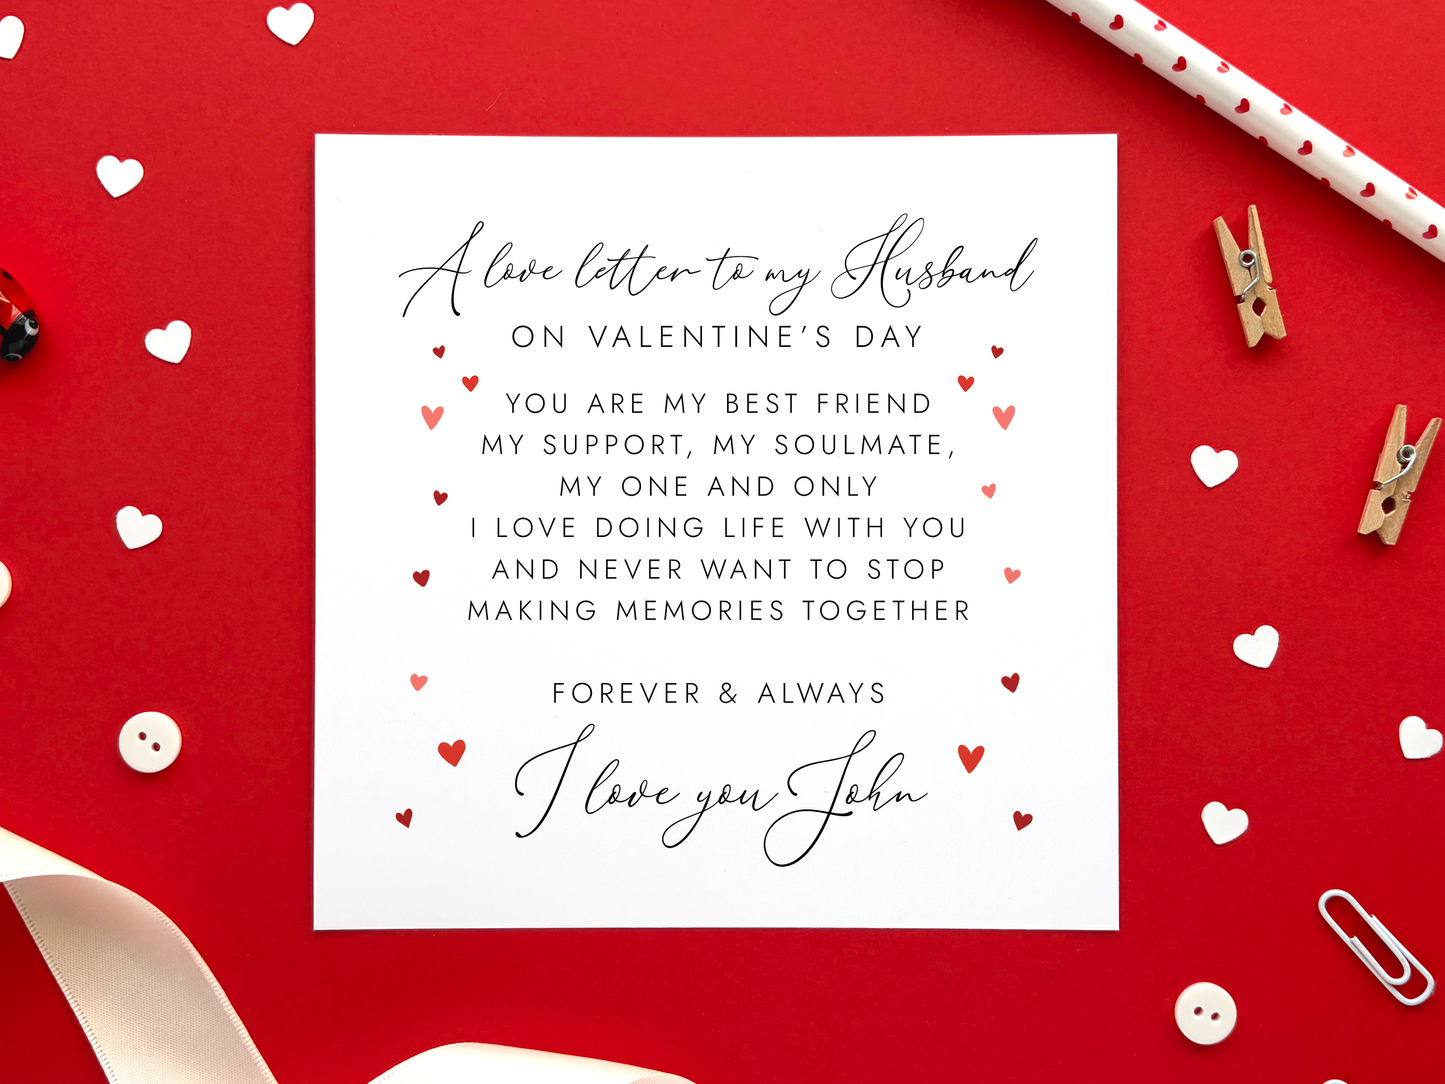 A love letter to my Husband
ON VALENTINE'S DAY
YOU ARE MY BEST FRIEND
MY SUPPORT, MY SOULMATE,
MY ONE AND ONLY
I LOVE DOING LIFE WITH YOU
AND NEVER WANT TO STOP
MAKING MEMORIES TOGETHER
FOREVER & ALWAYS
I love you John